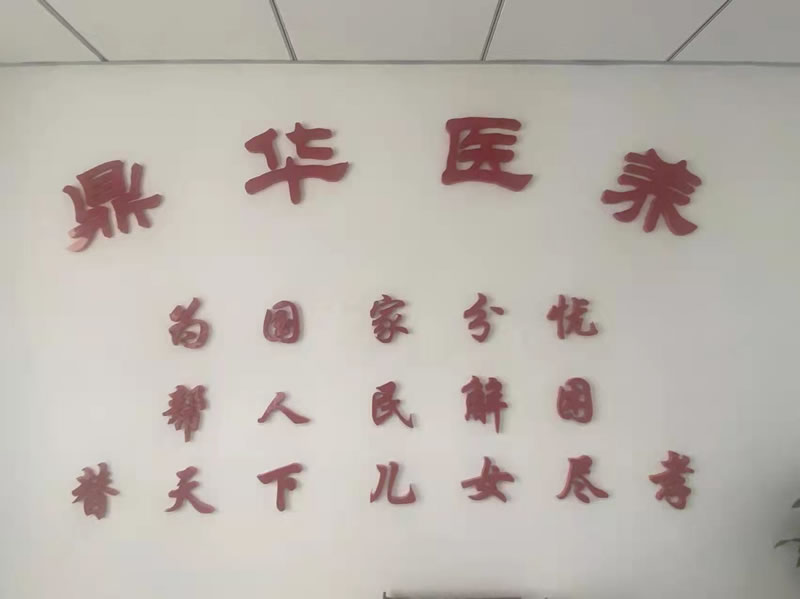 鼎华医养
为国家分忧
帮人民解困
替天下儿女尽孝